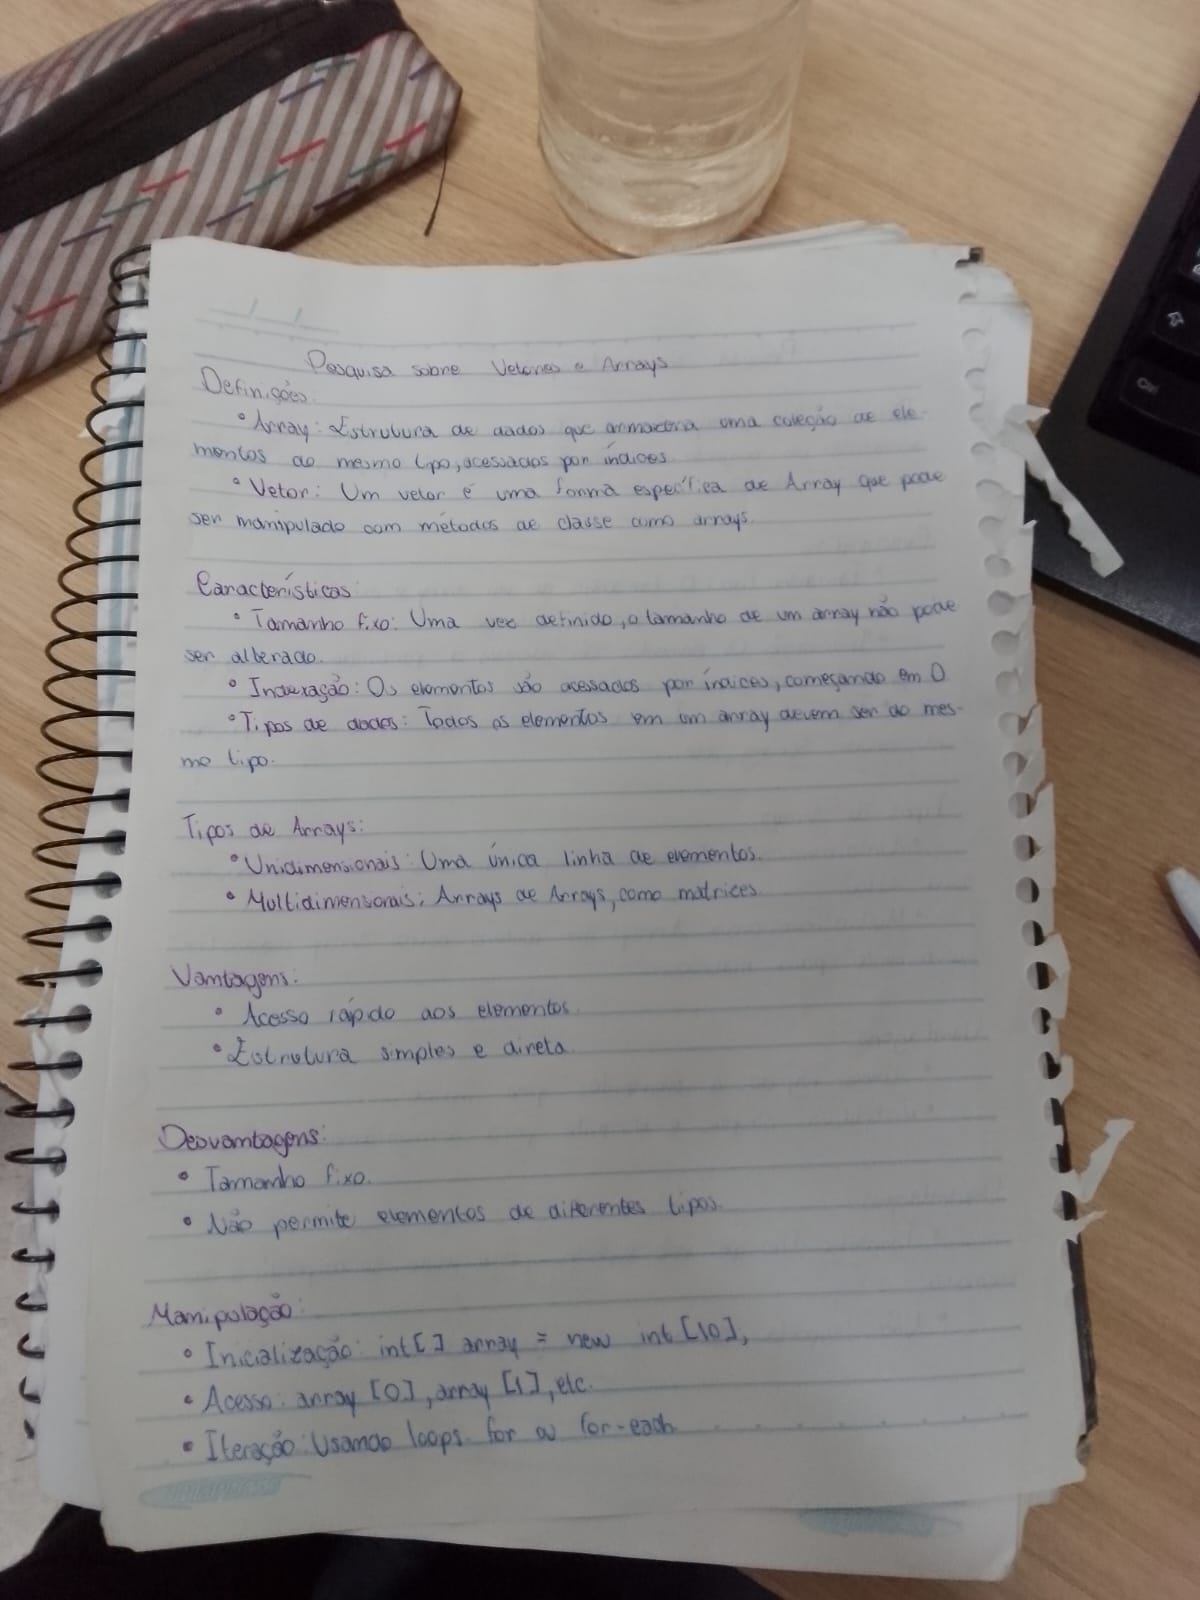 Pesquisa sobre Vetores e Arrays
Definições:
• Array: Estrutura de dados que armazena uma coleção de ele-
mentos do mesmo tipo, acessados por índices.
• Vetor: Um vetor é uma forma específica de Array que pode
ser manipulado com métodos de classe como arrays.
Características:
• Tamanho fixo: Uma vez definido, o tamanho de um array não pode
ser alterado.
• Indexação: Os elementos são acessados por índices, começando em 0
• Tipos de dados: Todos os elementos em um array devem ser do mes-
mo tipo.
Tipos de Arrays:
• Unidimensionais: Uma única linha de elementos.
• Multidimensionais: Arrays de Arrays, como matrices
Vantagens:
• Acesso rápido aos elementos
• Estrutura simples e direta.
Desvantagens:
• Tamanho fixo.
• Não permite elementos de diferentes tipos.
Manipulação:
• Inicialização: int[] array = new int [10],
• Acesso: array [0], array [1], etc.
• Iteração: Usando loops for ou for-each
Ctrl